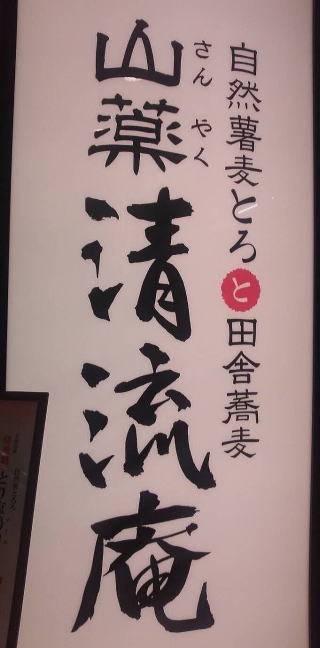 自然薯麦とろと田舎蕎麦
さんやく
山薬清流庵